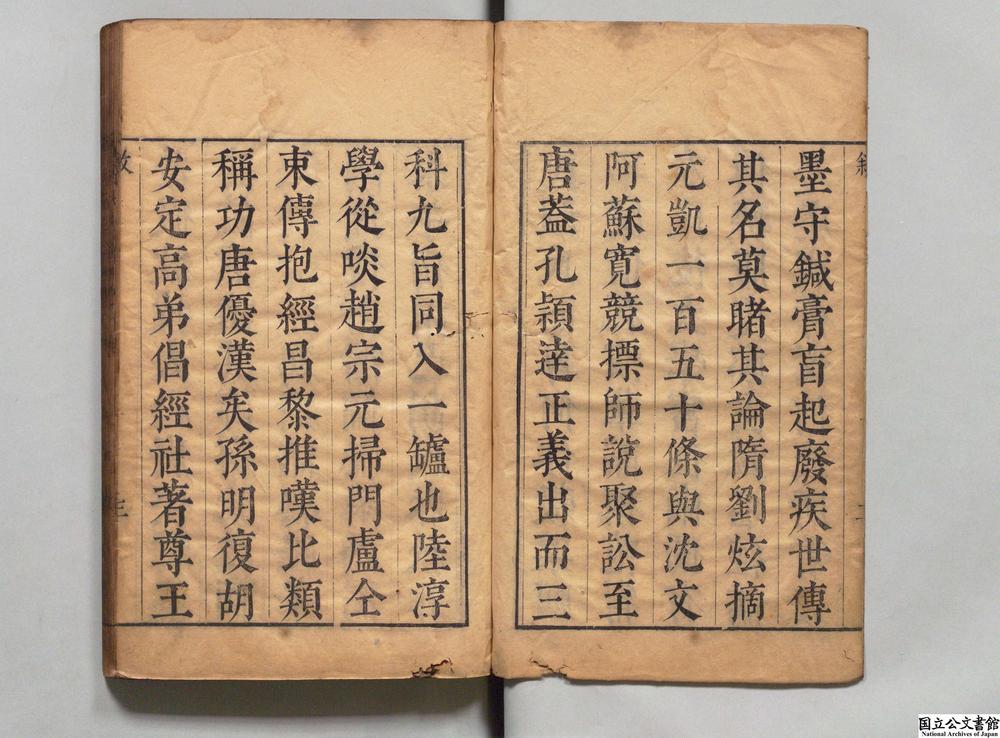 墨守鍼膏盲起廢疾世傳
其名莫睹其論隋劉炫摘
元凱一百五十條與沈文
阿蘇寬競摽師說聚訟至
唐葢孔頴逹正義出而三
科九旨同入一罏也陸淳
學從啖趙宗元掃門盧仝
束傳抱經昌黎推嘆比類
稱功唐優漢矣孫明復胡
安定高弟倡經社著尊王
国立公文書館
National Archives of Japan